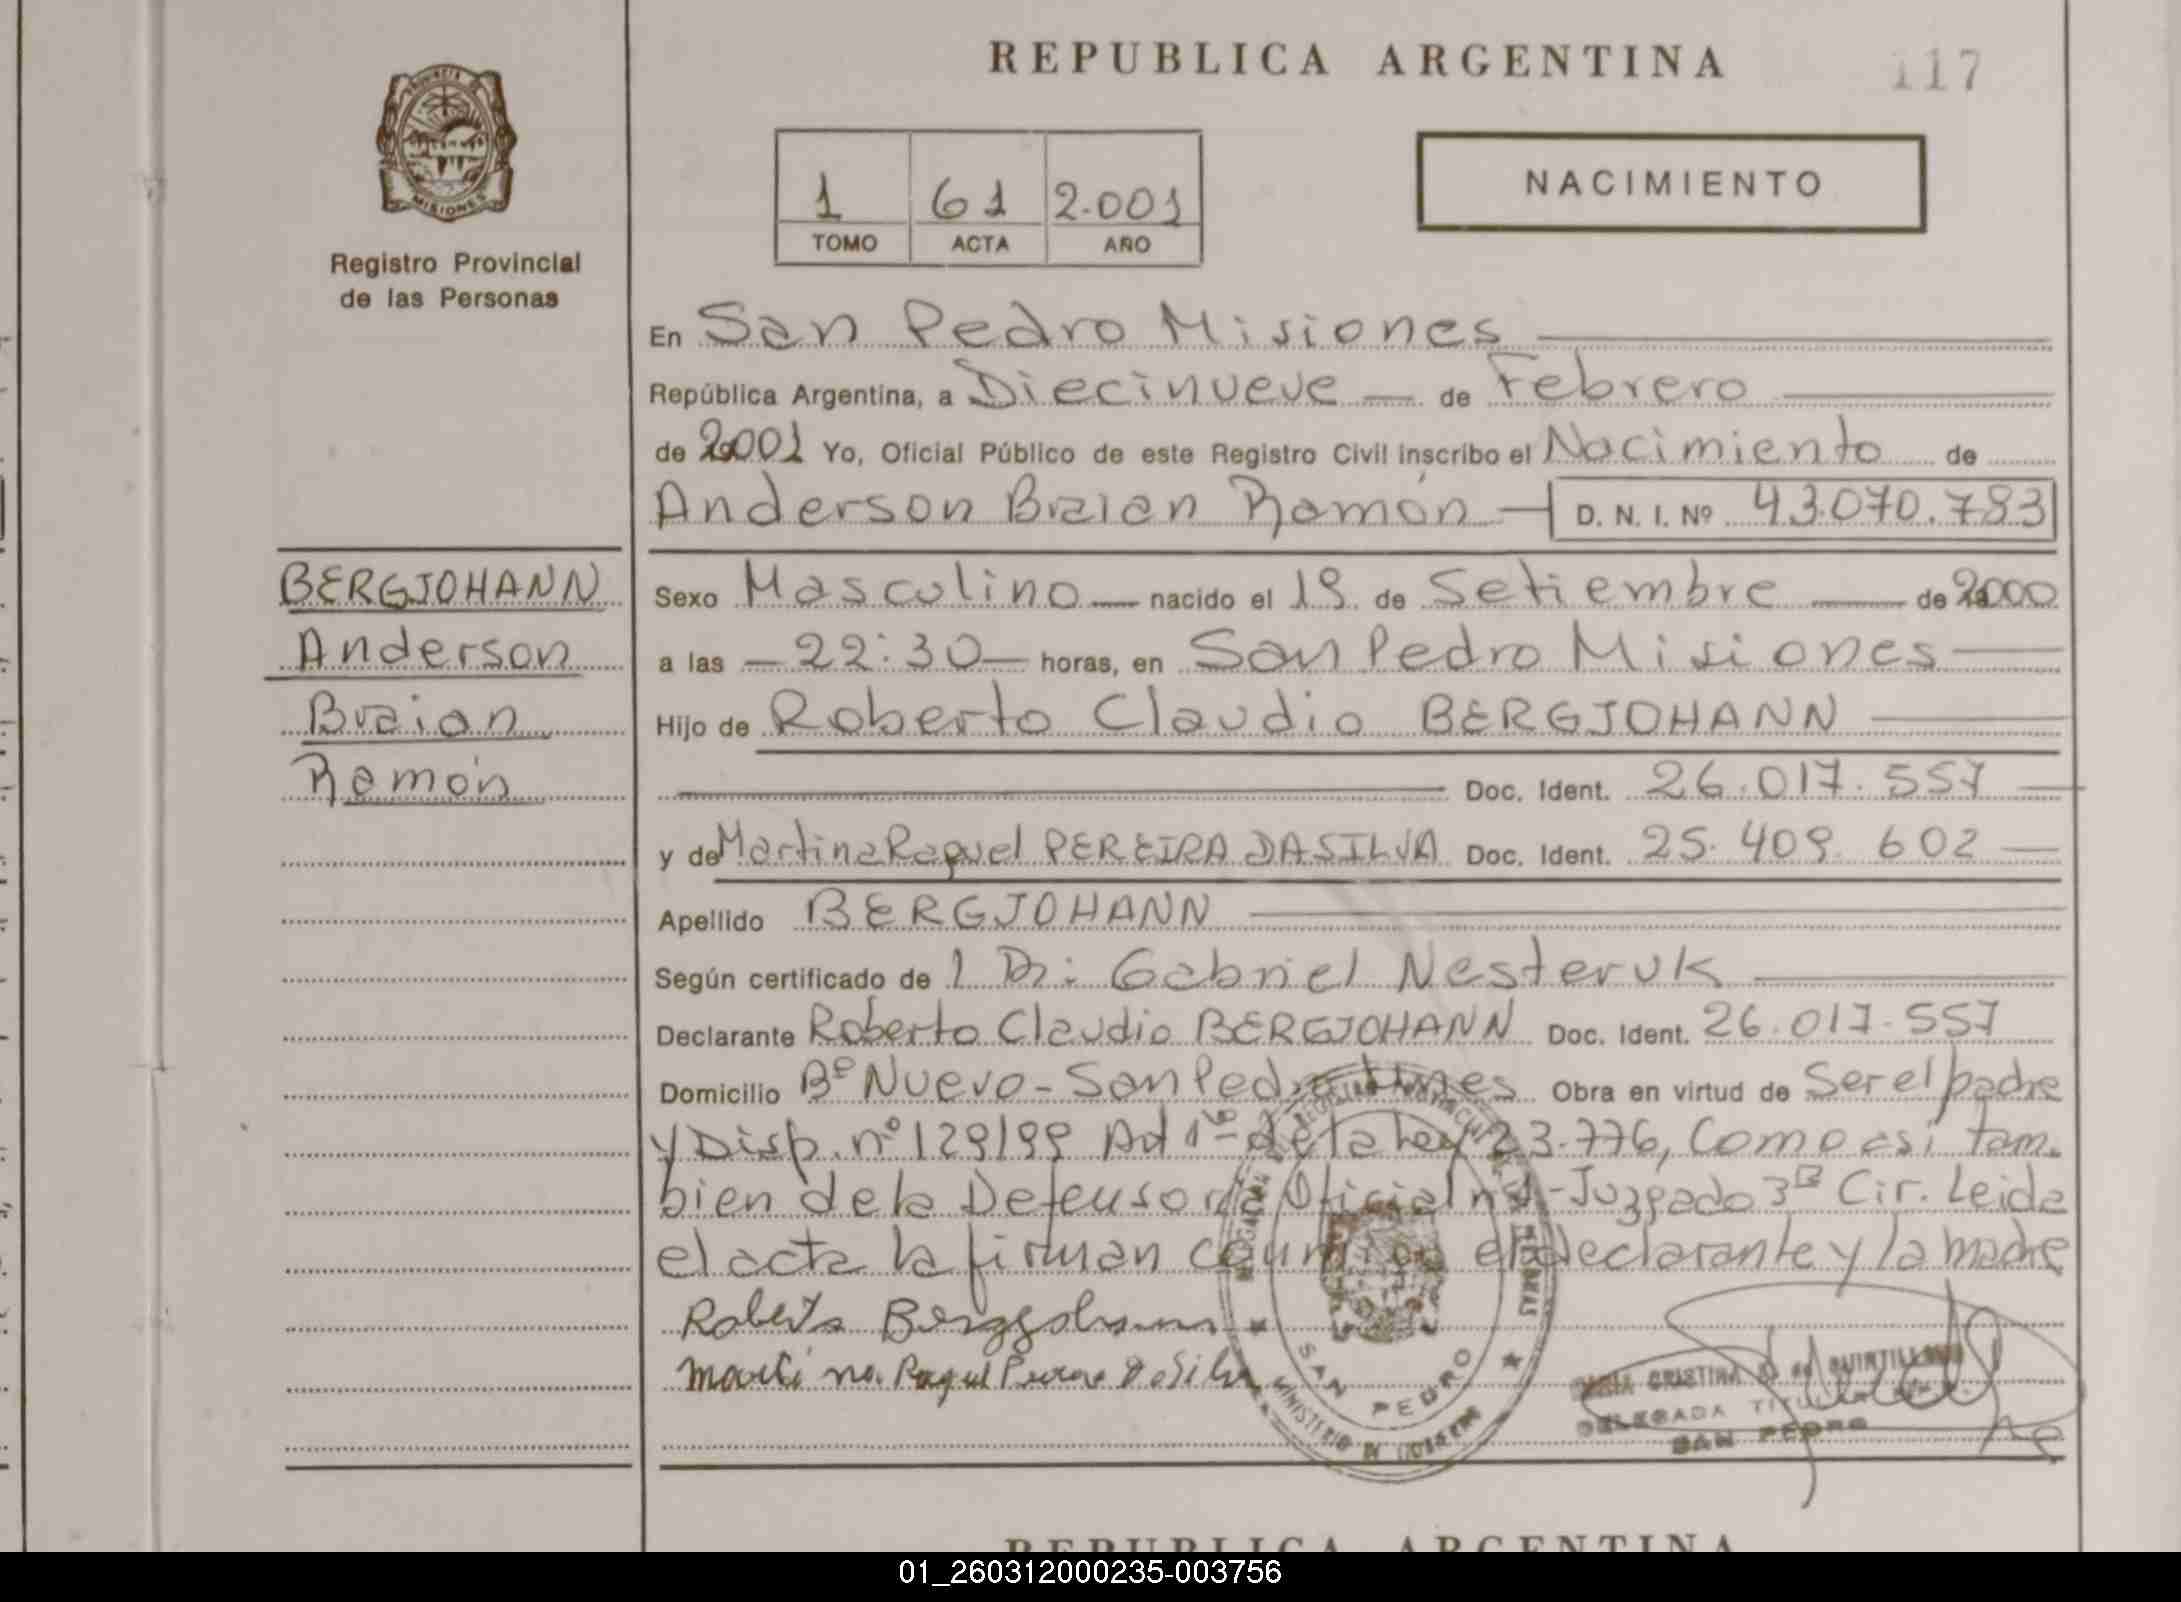 REPUBLICA ARGENTINA
117
PROVINCIA DE
MISIONES
Registro Provincial
de las Personas
1 61 2.001
TOMO ACTA AÑO
NACIMIENTO
En San Pedro Misiones
República Argentina, a Diecinueve de Febrero
de 2001 Yo, Oficial Público de este Registro Civil inscribo el Nacimiento de
Anderson Braian Ramón D. N. I. Nº 43.070.783
BERGJOHANN
Anderson
Braian
Ramón
Sexo Masculino nacido el 19 de Setiembre de 2000
a las 22:30 horas, en San Pedro Misiones
Hijo de Roberto Claudio BERGJOHANN
Doc. Ident. 26.017.557
y de Martina Raquel PEREIRA DA SILVA Doc. Ident. 25.409.602
Apellido BERGJOHANN
Según certificado de l Dr. Gabriel Nesteruk
Declarante Roberto Claudio BERGJOHANN Doc. Ident. 26.017.557
Domicilio Bº Nuevo - San Pedro Mnes Obra en virtud de Ser el padre
y Disp. nº 129/99 Ad 1º de la ley 23.776, Como asi tam-
bien de la Defensoria Oficial nº Juzgado 3ª Cir. Leida
el acta la firman conmigo el declarante y la madre
Roberto Bergjohann
Martina Raquel Pereira Da Silva
SAN PEDRO
MINISTERIO DE GOBIERNO
MARIA CRISTINA S. de QUINTILLAN
DELEGADA TITULAR
SAN PEDRO
REPUBLICA ARGENTINA
01_260312000235-003756